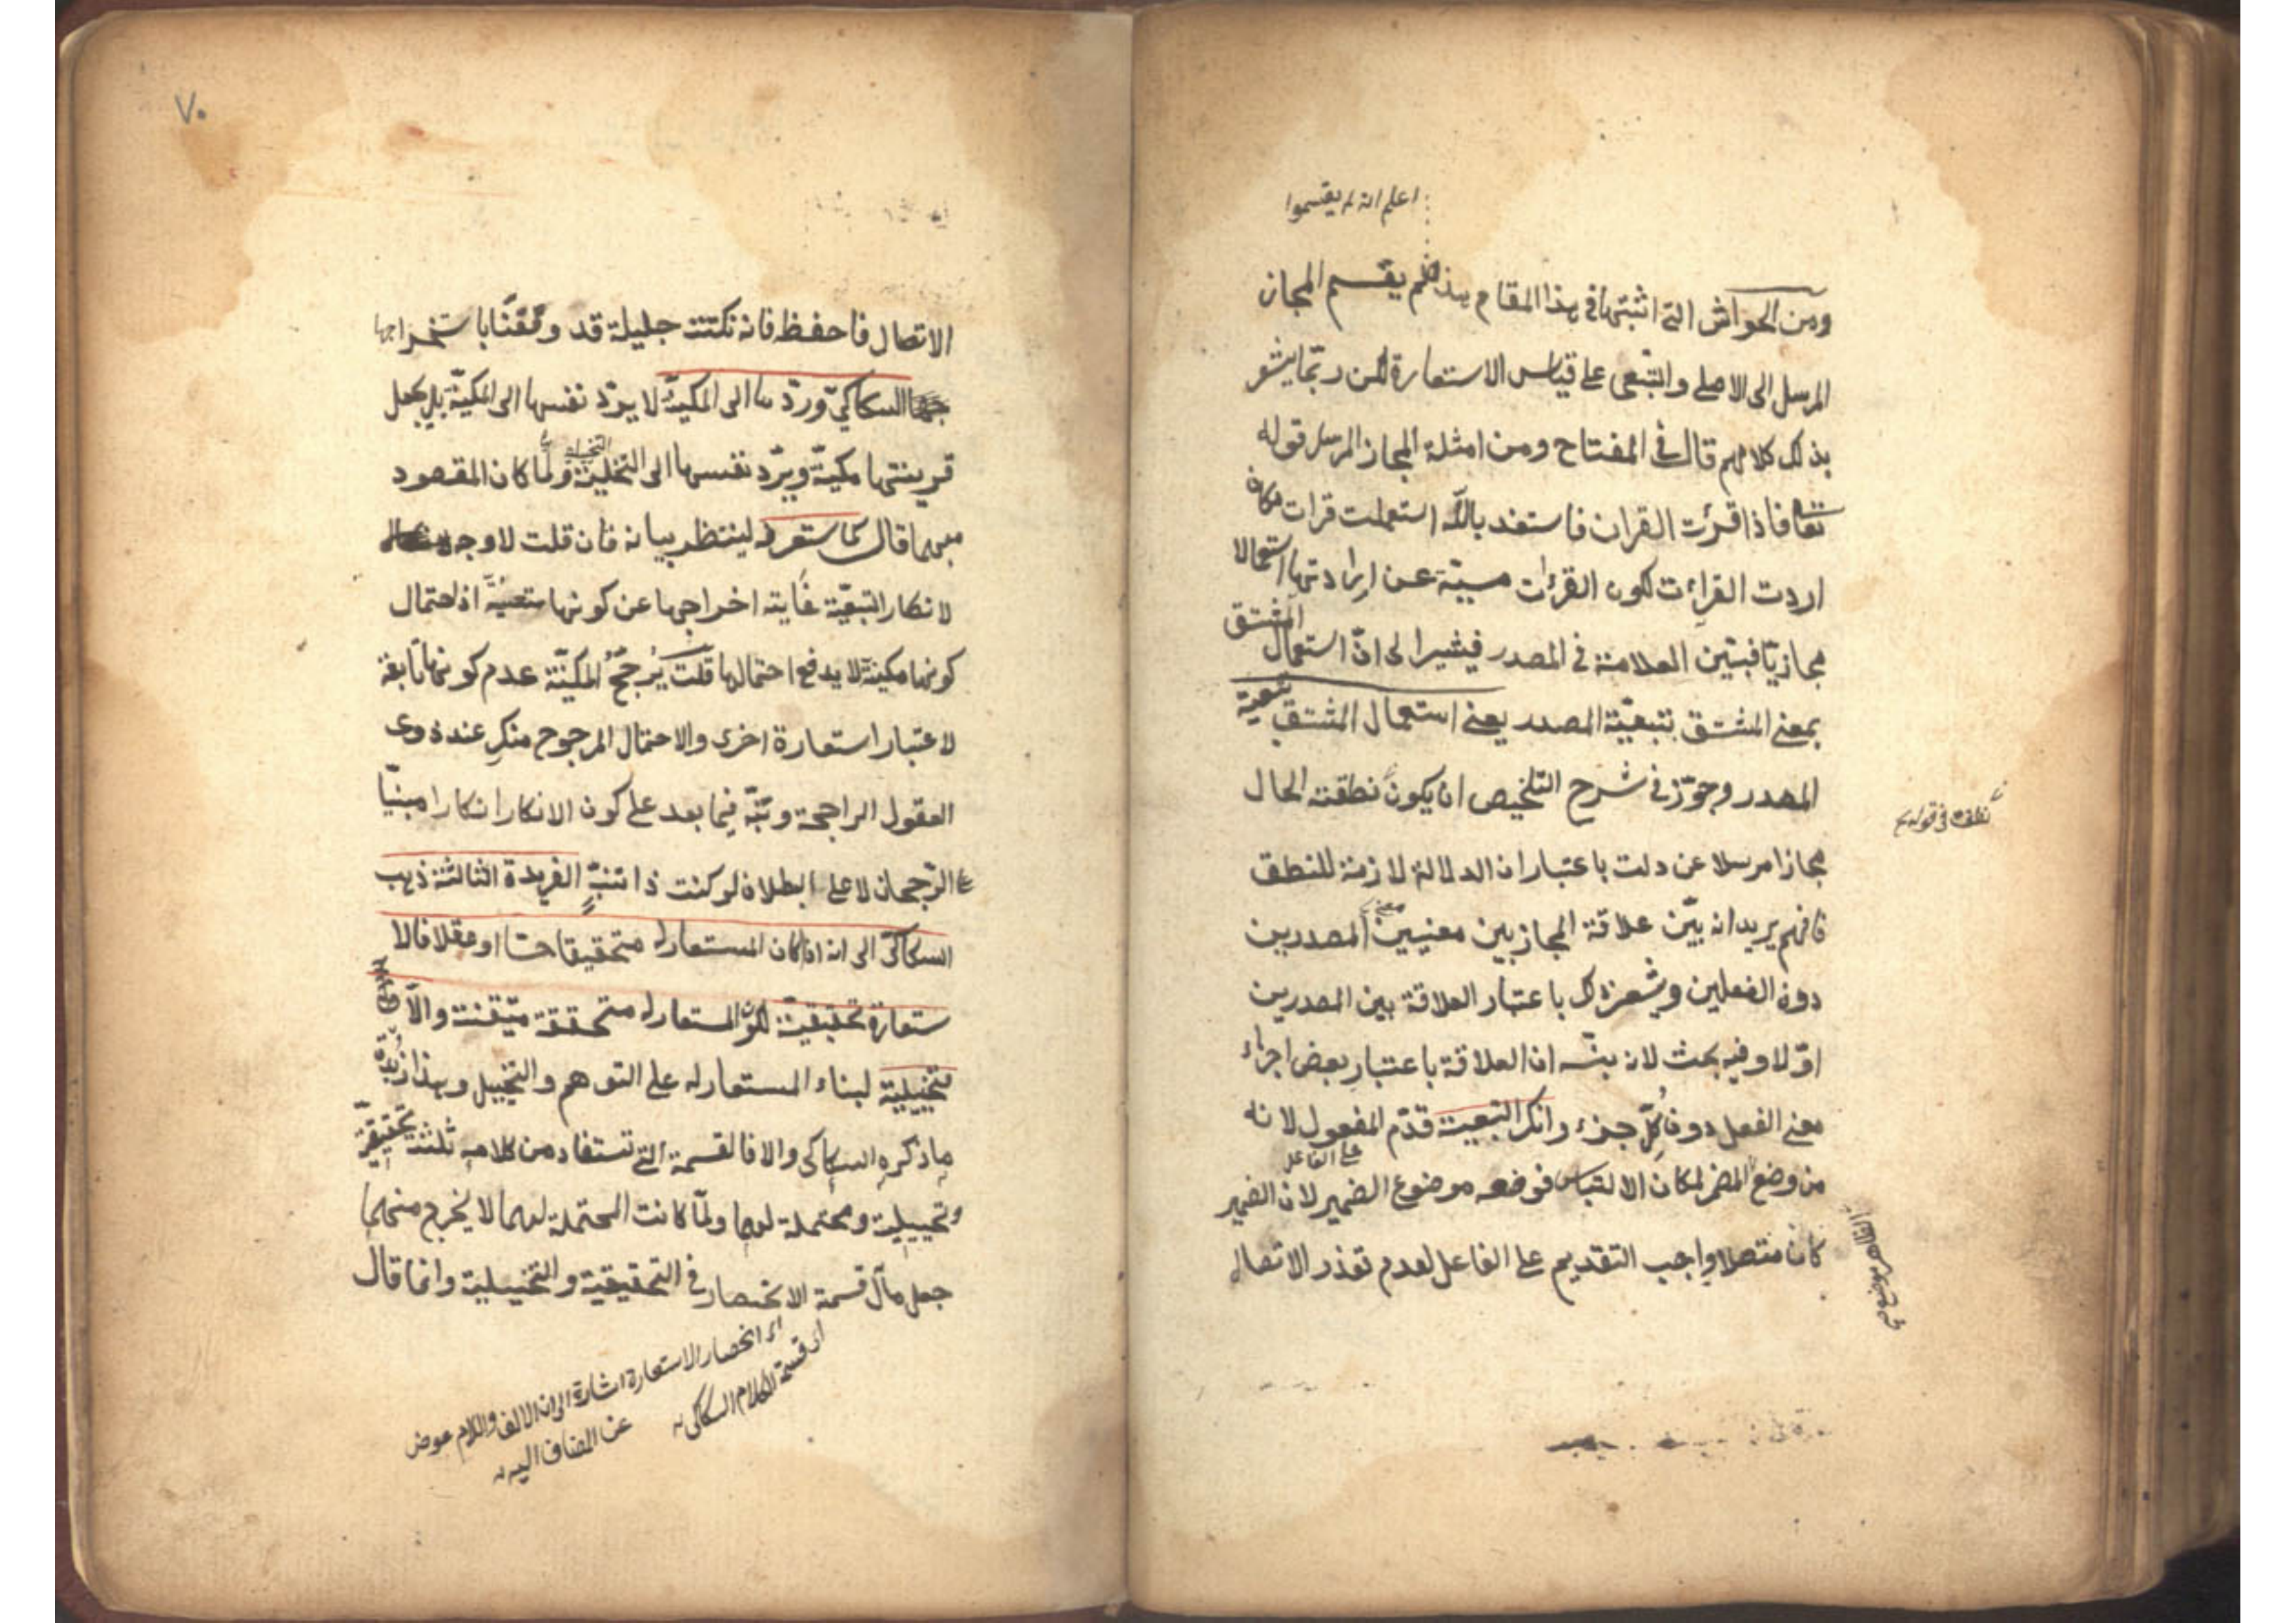 اعلم انه لم يقسموا
ومن الحواش التى اثبتها فى هذا المقام هذا كلم يقسم المجاز
المرسل الى الاصلى والتبعى على قياس الاستعارة لكن ربّما يشعر
بذلك كلامهم قال فى المفتاح ومن امثلة المجاز المرسل قوله
تعا فاذا قرئت القران فاستعذ بالله استعملت قرات مكان
اردت القراءت لكون القرءات مسببّة عن ارادتها استعمالا
مجازيّا فبتّين العلامة فى المصدر فيشير الى انّ استعمال المشتق
بمعنى المشتق بتبعيّة المصدر يعنى استعمال المشتق تبعية
المصدر وجوّز فى شرح التلخيص ان يكون نطقت الحال
نطقت فى قولهم
مجازا مرسلا عن دلت باعتبار ان الدلالة لازمة للنطق
فافهم يريد انه بيّن علاقة المجاز بين معنيين المصدرين
دون الفعلين ويشعر ذلك باعتبار العلاقة بين المصدرين
اوّلا وفيه بحث لانه بنّه ان العلاقة باعتبار بعض اجزاء
معنى الفعل دون كُلِّ جزء وانكر التبعية قدّم المفعول لانه
على الفاعل
من وضع المضمر لمكان الالتباس فوضعه موضوع الضمير لان الضمير
الظاهر موضعه
كان متصلا واجب التقديم على الفاعل لعدم تعذر الاتصال
٧٠
الاتصال فاحفظ فانه نكتت جليلة قد وفّقنا باستخراجها
السكاكىّ وردّها الى المكنيّة لا يردّ نفسها الى المكنيّة بل يجعل
قرينتها مكنيّة ويردّ نفسها الى التخليّة ولمّا كان المقصود
التخيلية
مبهما قال كما ستعرفه لينتظر بيانه فان قلت لا وجه
لانكار التبعيّة غاية اخراجها عن كونها متعينة اذ احتمال
كونها مكنية لا يدفع احتمالها قلت يُرجحُّ المكنيّة عدم كونها تابعة
لاعتبار استعارة اخرى والاحتمال المرجوح منكر عند ذوى
العقول الراجحة ونبّه فيما بعد على كون الانكار انكارا مبنيّا
على الرّجحان لا على البطلان لو كنت ذا تنبّهٍ الفريدة الثالثة ذهب
السكاكىّ الى انه اذا كان المستعار له متحقيقا حسّا او عقلا فالا
ستعارة تحقيقيّة لكون المستعار له متحققة متيّقنة والّا
فتخييلية لبناء المستعار له على التوهم والتخييل وهذا زُبْدة
ما ذكره السكاكى والا فالقسمة التى تستفاد من كلامه ثلثة تحقيقيّة
وتخييلية ومحتملة لهما ولمّا كانت المحتملة لهما لا يخرج منهما
جعل مآل قسمة الانحصار فى التحقيقية والتخييلية وانما قال
اى انحصار الاستعارة اشارة الى ان الالف واللام عوض
عن المضاف اليه
اى قسمة الكلام السكاكى